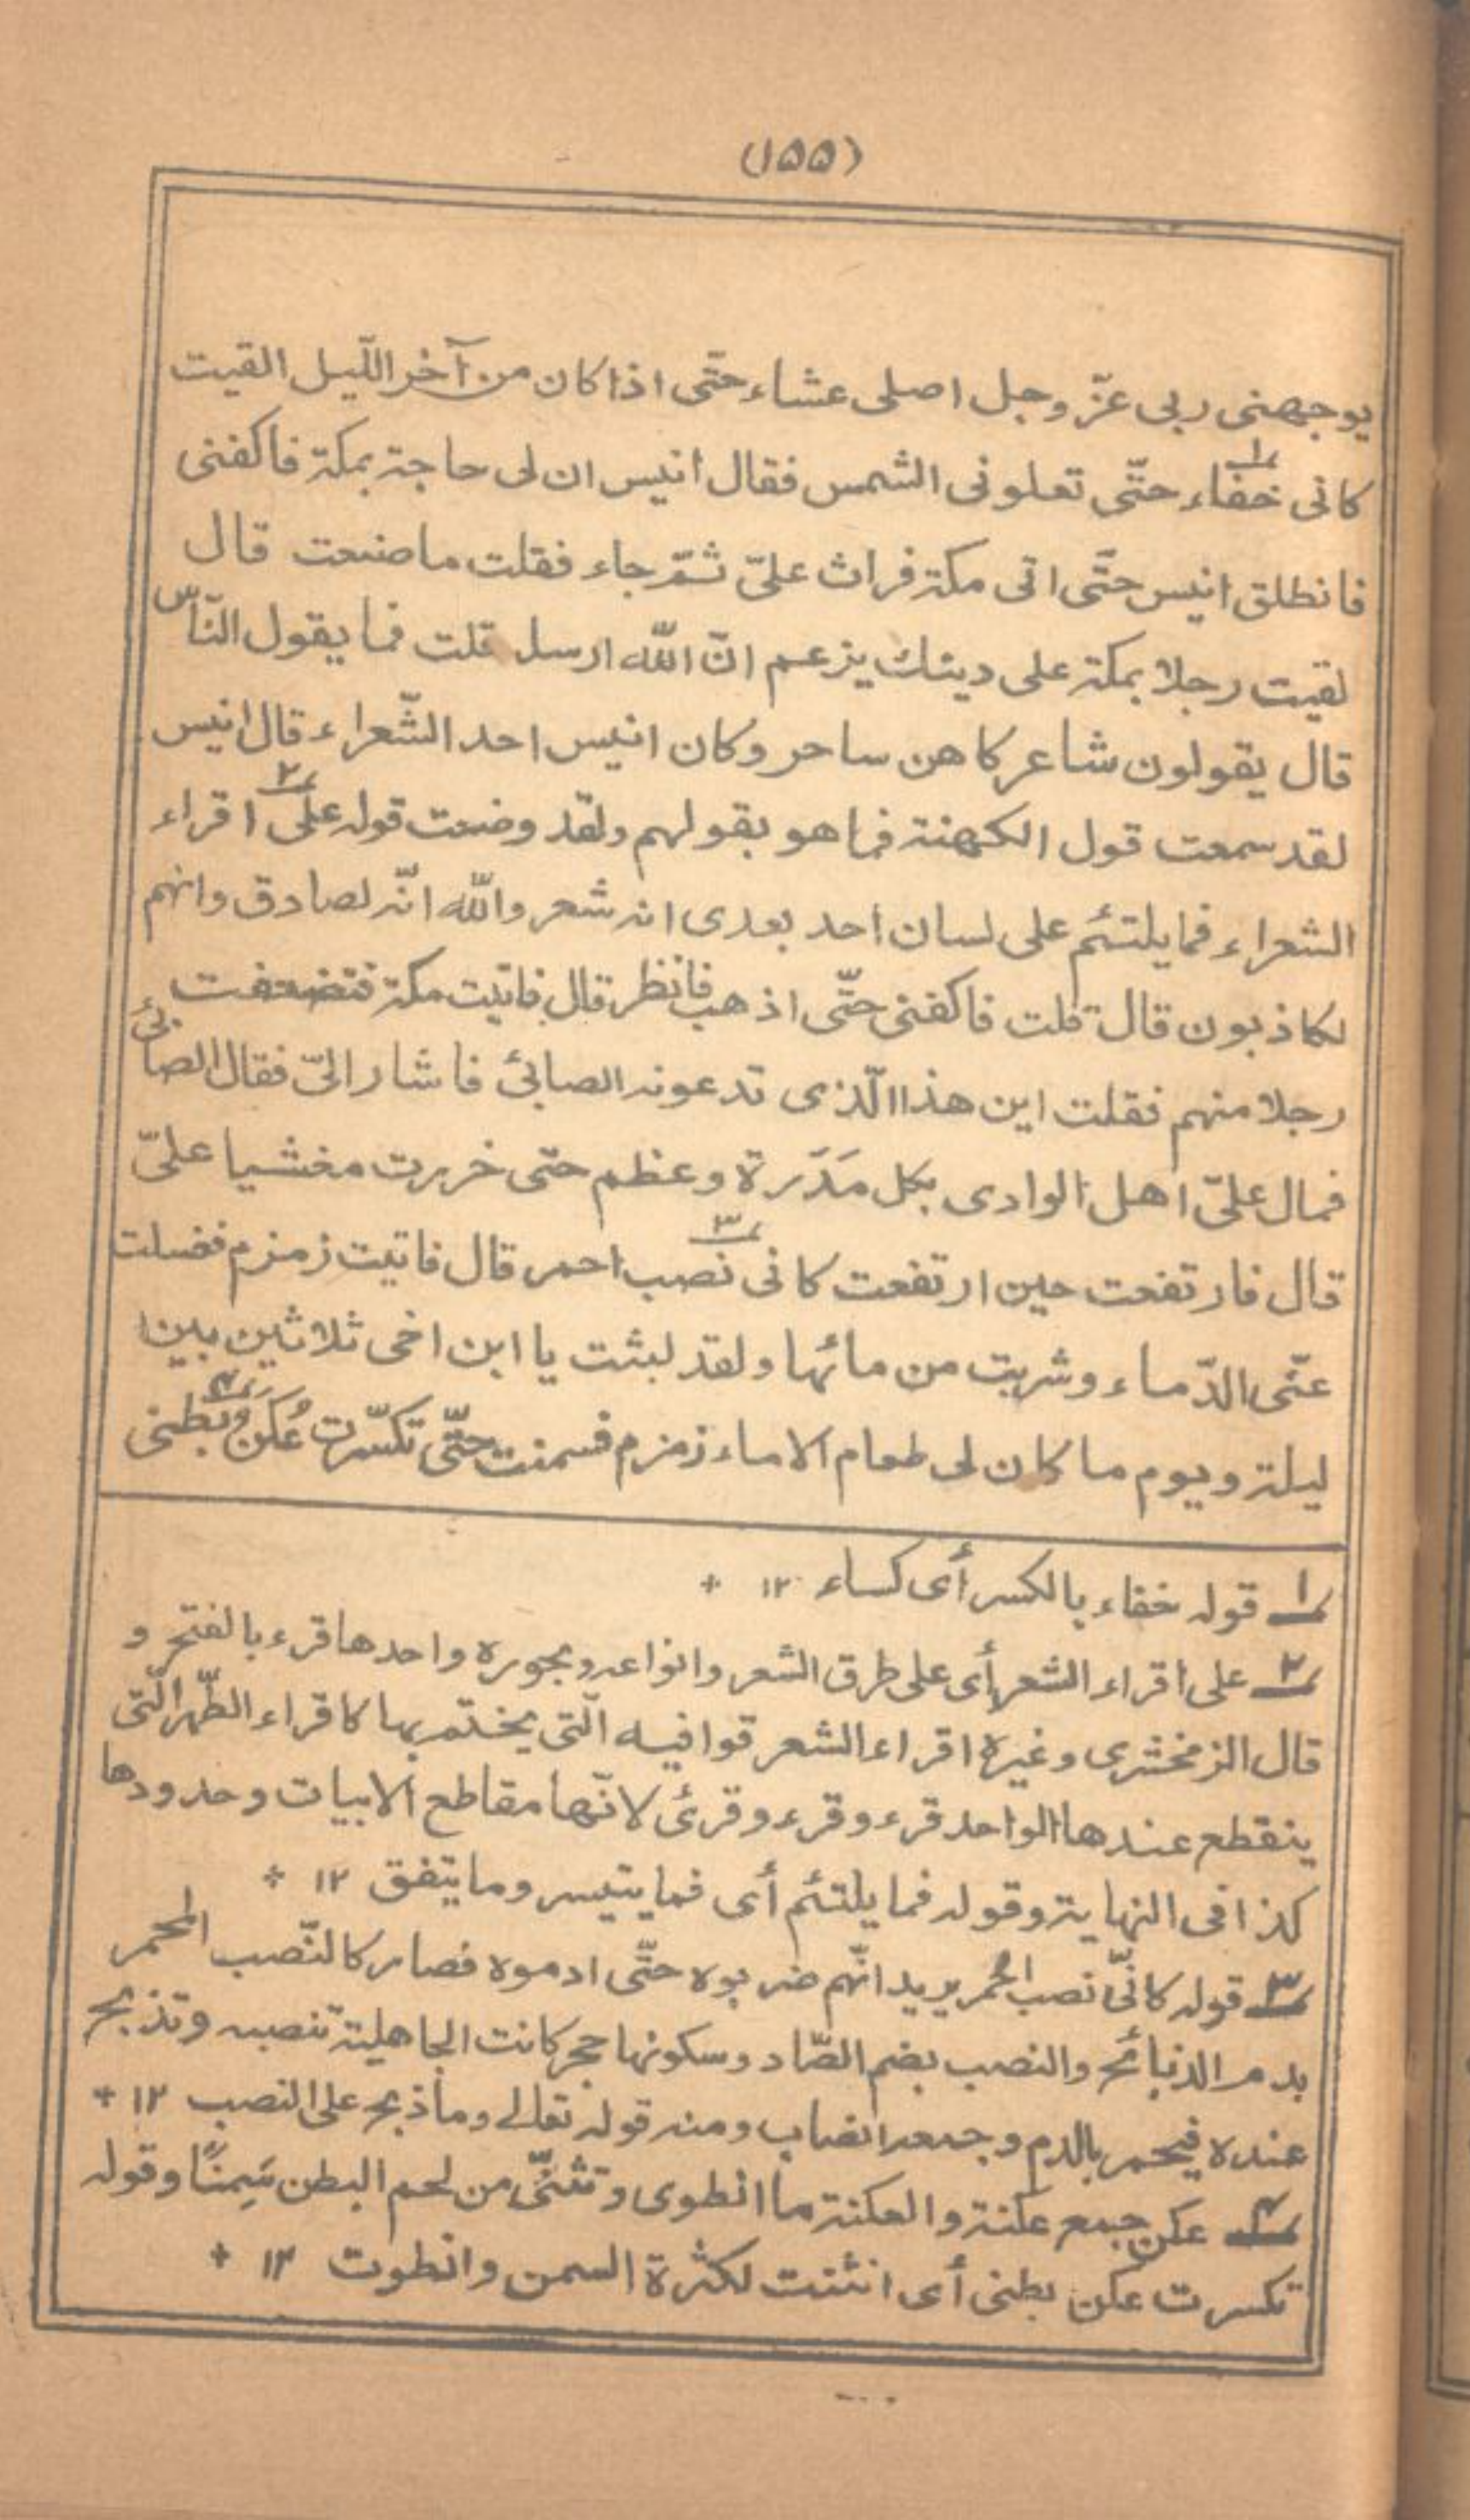 (١٥٥)
يوجهنى ربى عزّ وجل اصلى عشاء حتّى اذا كان من آخر اللّيل القيت
كانى خفاء١ حتّى تعلونى الشمس فقال انيس ان لى حاجة بمكة فاكفنى
فانطلق انيس حتَّى اتى مكة فراث علىّ ثمّ جاء فقلت ما صنعت قال
لقيت رجلا بمكة على دينك يزعم انّ اللّٰه ارسل قلت فما يقول النّاس
قال يقولون شاعر كاهن ساحر وكان انيس احد الشّعراء قال انيس
لقد سمعت قول الكهنة فما هو بقولهم ولقد وضعت قوله على٢ اقراء
الشعراء فما يلتئم على لسان احد بعدى انه شعر واللّٰه انّه لصادق وانهم
لكاذبون قال قلت فاكفنى حتّى اذهب فانظر قال فاتيت مكة فتضعفت
رجلا منهم فقلت اين هذا الّذى تدعونه الصابئ فاشار الىّ فقال الصابئ
فمال علىّ اهل الوادى بكل مَدَرة وعظم حتى خررت مغشيا علىّ
قال فارتفعت حين ارتفعت كانى نصب٣ احمر قال فاتيت زمزم فغسلت
عنّى الدّماء وشربت من مائها ولقد لبثت يا ابن اخى ثلاثين بين
ليلة ويوم ما كان لى طعام الا ماء زمزم فسمنت حتّى تكسّرت عُكَن٤ُ بطنى
١ قوله خفاء بالكسر أى كساء ١٢ +
٢ على اقراء الشعر أى على طرق الشعر وانواعه وبحوره واحدها قرء بالفتح و
قال الزمخشرى وغيره اقراء الشعر قوافيه الّتى يختم بها كاقراء الطّهر الّتى
ينقطع عندها الواحد قرء وقرء وقرئ لانّها مقاطع الابيات وحدودها
كذا فى النهاية وقوله فما يلتئم أى فما يتيسر وما يتفق ١٢ +
٣ قوله كانّى نصب احمر يريد انّهم ضربوه حتّى ادموه فصار كالنّصب المحمر
بدم الذبائح والنصب بضم الصّاد وسكونها حجر كانت الجاهلية تنصبه وتذبح
عنده فيحمر بالدم وجمعه انصاب ومنه قوله تعالے وما ذبح على النصب ١٢ +
٤ عكن جمع عكنة والعكنة ما انطوى وتثنّى من لحم البطن سَمِنًا وقوله
تكسرت عكن بطنى أى انثنت لكثرة السمن وانطوت ١٢ +